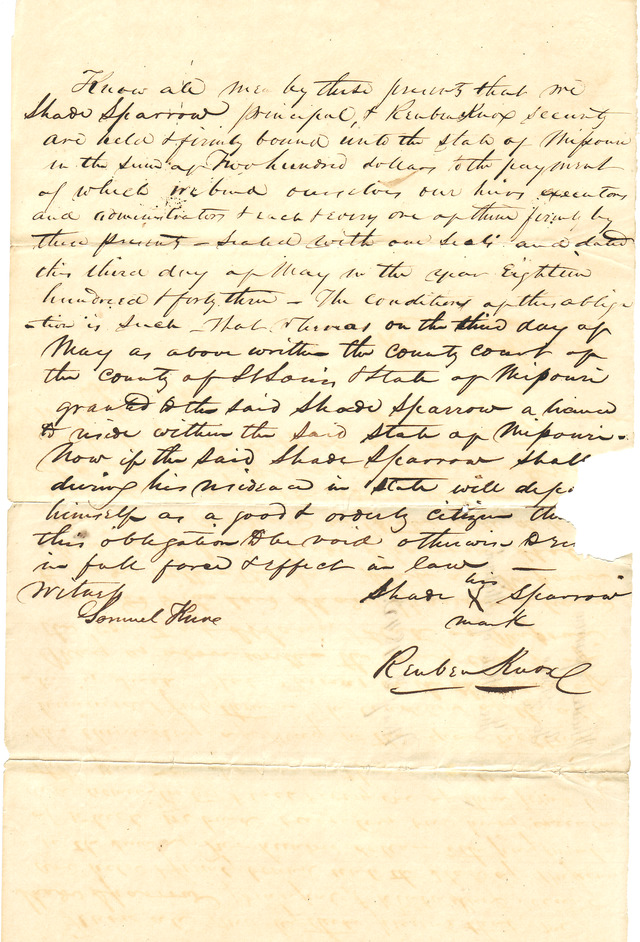 Know all men by these presents that we
Shade Sparrow principal, & Reuben Knox security
are held & firmly bound unto the State of Missouri
in the sum of Two hundred dollars to the payment
of which we bind ourselves our heirs executors
and administrators & each & every one of them firmly by
these presents – sealed with our seals and dated
this third day of May in the year Eighteen
hundred & forty three – The conditions of this oblig
-tion is such – That whereas on the third day of
May as above written the county court of
the county of St Louis & State of Missouri
granted to the said Shade Sparrow a licence
to reside within the said State of Missouri –
Now if the said Shade Sparrow shall
during his residence in state will
himself as a good & orderly citizen
this obligation to be void otherwise to
in full force & effect in law –
Witness
Shade his X Sparrow
mark
Samuel
Reuben Knox